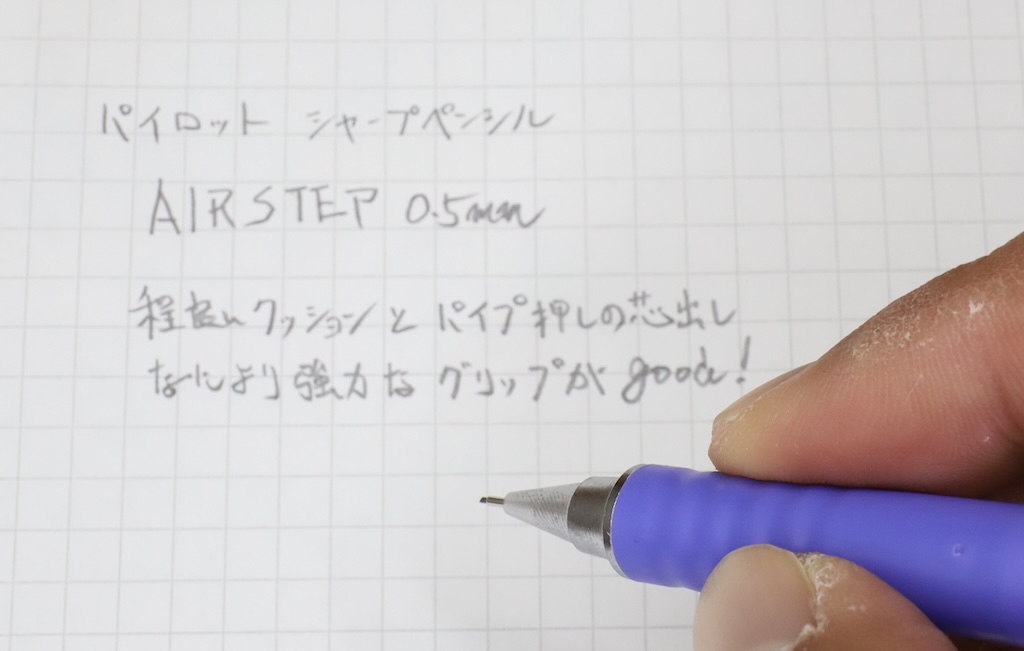 パイロット シャープペンシル
AIRSTEP 0.5mm
程良いクッションとパイプ押しの芯出し
なにより強力なグリップがgood!